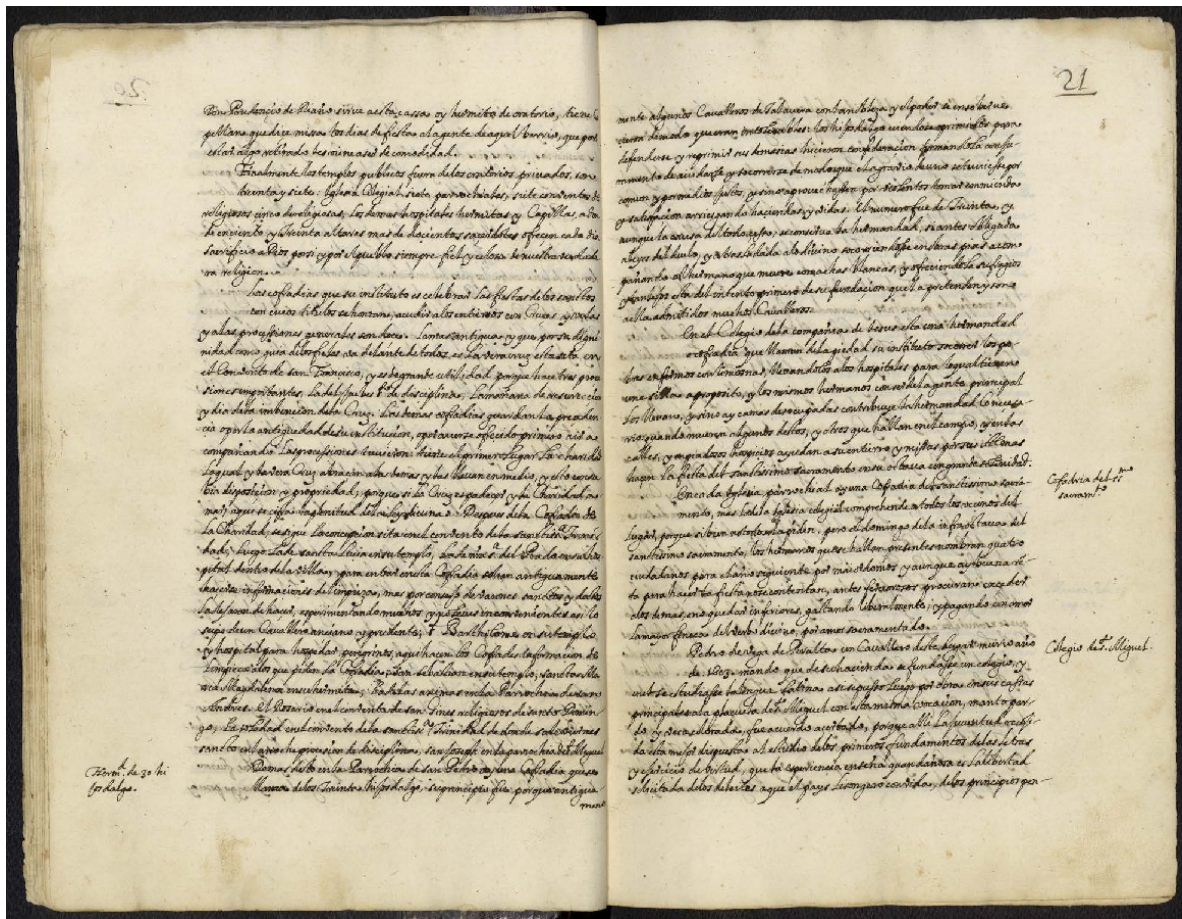 Don Prudencio de Riaño sirve a esta cassa oy hermita de oratorio, tiene Ca
pellan que dice missa los dias de fiesta a la gente de aquel barrio, que por
estar algo retirado tes mineaser de comodidad.
Finalmente los templos publicos fuera de los oratorios privados, son
treinta y siete: Iglesia Colegial, siete parrochiales, siete conventos de
religiosos cinco de religiosas, los demas hospitales hermitas y Capillas, a don
de en ciento y treinta altares mas de docientos sacerdotes ofrecen cada dia
sacrificio a Dios por si y por el pueblo siempre fiel y celoso de nuestra verdade
ra religion.
Las cofradias que su instituto es celebrar las fiestas de los santos
con cuios titulos se honran, acudir a los entierros con Cruces y
y a las processiones generales son doce. La mas antigua y que por su digni
nidad como guia de los fieles va delante de todos, es la vera cruz esta sita en
el Convento de san Francisco, y es de grande utilidad, porque hace tres proce
siones importantes. La del Jueves S.to de disciplina, La mañana de resurreccion
y dia de la invencion de la Cruz. Las demas cofradias guardan la preceden
cia o por la antiguedad de su institucion, o por averse ofrecido primero a ir a
compañando. Las processiones tuvieron: tiene el primer lugar la charidad
la qual y la vera Cruz abracan a las demas y las llevan en medio, y esto con sa
bia disposicion y propriedad, porque si la Cruz es padecer y la Charidad a
mar, aqui se cifra la plenitud de la ley divina. Despues de la Cofradia de
la Charidad, se sigue la concepcion sita en el convento de la santiss.a Trini
dad, luego la de santa Lucia en su templo, la de n.ra s.ra del Prado en su hos
pital dentro de la villa, y para entrar en esta Cofradia solian antiguamente
hacerse informaciones de limpieza, mas por consejo de varones sanctos y doctos
la dejaron de hacer, experimentando muchos y notables inconvenientes asi lo
supe de un Cavallero anciano y prudente, S. Bartholome en su templo
y hospital para hospedar peregrinos, aqui hacen los Cofrades informacion de
limpieza a los que piden la Cofradia, san Sebastian en su templo, sancta Ma
ria Magdalena en su hermita, Benditas animas en la Parrochia de san
Andres. El Rosario en el convento de san Gines religiosos de sancto Domin
go, la soledad en el convento de la santiss.a Trinidad de donde sale Viernes
sancto en la noche procesion de disciplina, san Joseph en la parrochia de S. Miguel
Demas desto en la Parrochia de san Pedro ay una Cofradia que se
llama de los Treinta hijosdalgo, su principio fue porque antigua
mente
Herm.d de 30 hi
josdalgo.
21
mente algunos Cavalleros de Talavera con la nobleza y el poder se ensoberve
cieron de modo que eran intolerables: los hijosdalgo viendose oprimidos para
defenderse y reprimir sus demasias hicieron confederacion tomandola con jura
mento de ayudarse y socorrerse de modo que el agravio de uno se tuviesse por
comun y por medios justos, y sino aprovechassen por violentos tomar enmienda
y satisfacion arriesgando haciendas y vidas. El numero fue de Treinta, y
aunque la causa del todo cesso, se conserva la hermandad, si antes obligada
a leyes del duelo, ya trasladada a lo divino socorriendose en obras pias acom
pañando al hermano que muere con achas blancas, y ofreciendole sufragios
y tan lejos esta del intento primero de su fundacion que la pretenden y son a
ella admitidos muchos Cavalleros.
En el Colegio de la compañia de Jesus esta una hermandad
o cofradia que llaman de la piedad su instituto sacar los po
bres enfermos con limosnas, llevandolos a los hospitales para lo qual tienen
una silla a proposito, y los mismos hermanos con ser de la gente principal
los llevan, y sino ay camas desocupadas contribuye la hermandad lo necessa
rio, quando mueren algunos destos, y otros que hallan en el campo, y en las
calles, y en piadosos hospicios ayudan a su entierro y missas por sus Almas
hacen la fiesta del santissimo sacramento en su octava con grande solenidad.
En cada Iglesia parrochial ay una Cofradia del santissimo sacra
mento, mas la de la Iglesia colegial comprehende a todos los vecinos del
lugar, porque sirven a todos los que la piden, pero el domingo de la infraoctava del
santissimo sacramento, los hermanos que se hallan presentes nombran quatro
ciudadanos para el año siguiente por maiordomos y aunque ay buena ren
ta para hacer la fiesta no se contentan, antes fervorosos procuran exceder
a los demas, o no quedar inferiores, gastando liberalmente, y pagando con amor
las mayores finezas del verbo divino, por amor sacramentado.
Pedro de Vega de Peralta un Cavallero deste lugar murio año
de 1603. mando que de su hacienda se fundasse un colegio, y
en el se estudiasse la lengua latina, asi se puso luego por obra en sus cassas
principales a la placuela de S. Miguel con esta misma vocacion, manto par
do y veca colorada, fue acuerdo acertado, porque alli la juventud recogi
da esta mejor dispuesta al estudio de los primeros fundamentos de las letras
y exercicio de virtud, que la experiencia enseña quan dañosa es la libertad
solicitada de los deleites a que el pays lisongero convida, de los principios pen-
Cofadria del ss.mo
sacram.to
Colegio de S. Miguel.